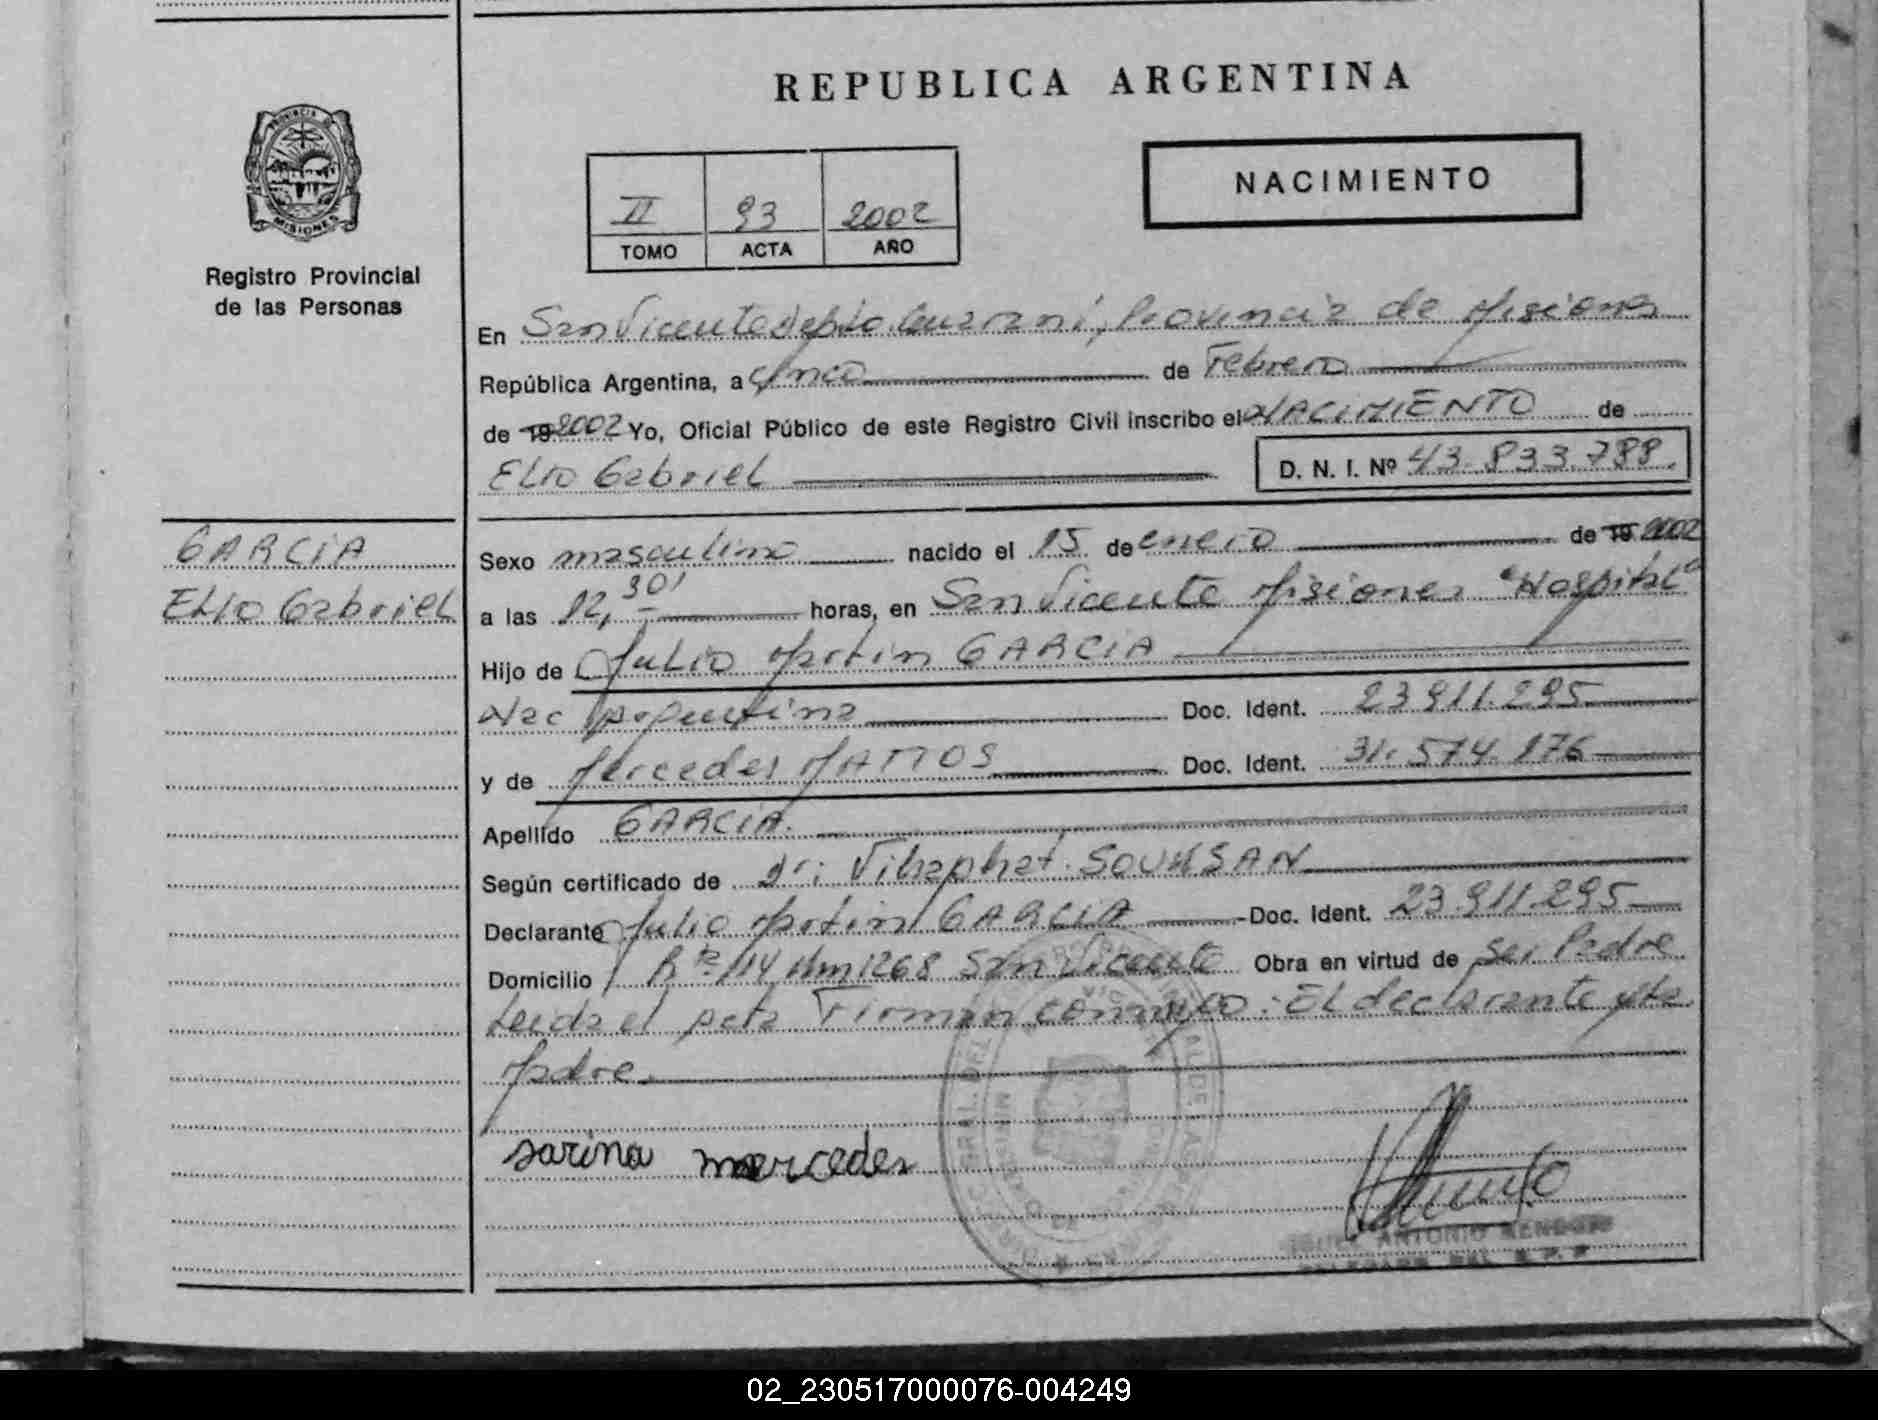 REPUBLICA ARGENTINA
PROVINCIA DE
MISIONES
Registro Provincial
de las Personas
II 93 2002
TOMO ACTA AÑO
NACIMIENTO
En San Vicente depto. Guarani, Provincia de Misiones
República Argentina, a cinco de Febrero
de 19 2002 Yo, Oficial Público de este Registro Civil inscribo el NACIMIENTO de
Elio Gabriel D. N. I. Nº 43.833.788.
GARCIA
Elio Gabriel
Sexo masculino nacido el 15 de enero de 19 2002
a las 12,30' horas, en San Vicente Misiones "Hospital"
Hijo de Julio Martin GARCIA
Nac Argentina Doc. Ident. 23.911.295
y de Mercedes MATTOS Doc. Ident. 31.574.176
Apellido GARCIA.
Según certificado de dr: SOUKSAN
Declarante Julio Martin GARCIA Doc. Ident. 23.911.295
Domicilio Rta 14 Km 1268 San Vicente Obra en virtud de ser Padre
Leida el acta Firman conmigo: El declarante y la
Madre.
sarina mercedes
ANTONIO
02_230517000076-004249